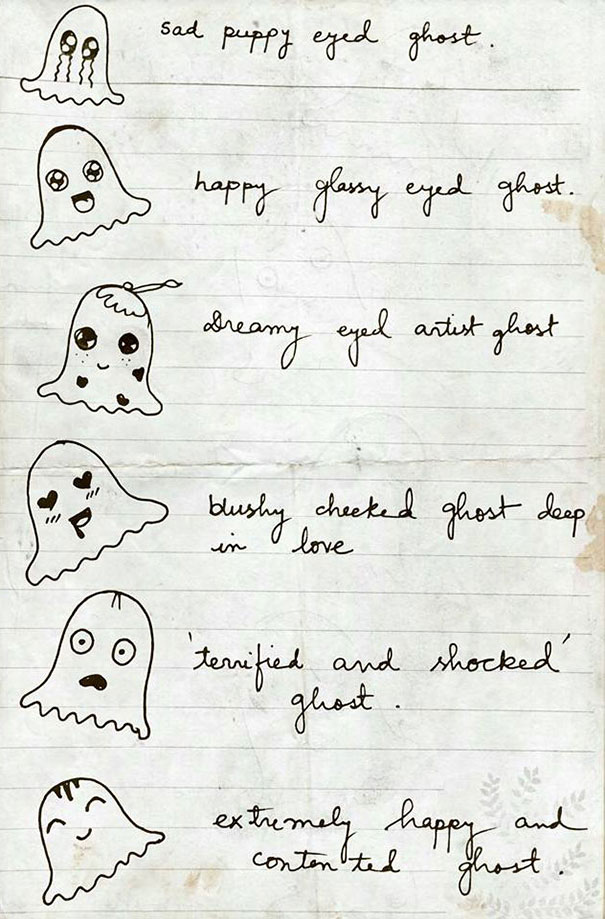 sad puppy eyed ghost.
happy glassy eyed ghost.
Dreamy eyed artist ghost
blushy cheeked ghost deep
in love
'terrified and shocked'
ghost.
extremely happy and
contented ghost.